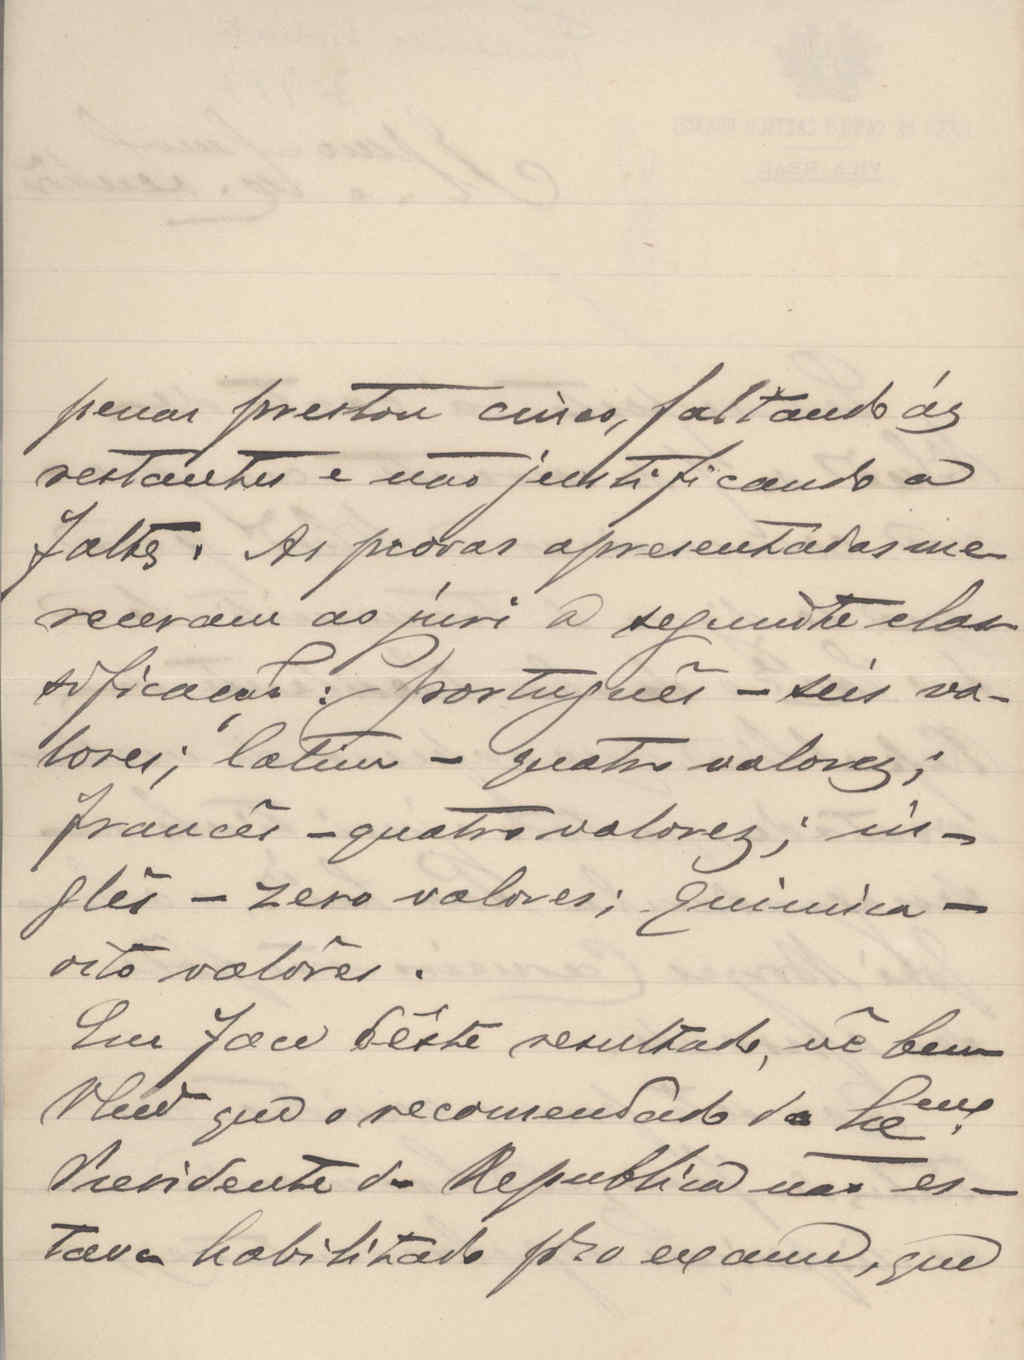 penas prestou cinco, faltando ás
restantes e não justificando a
falta. As provas apresentadas me-
receram ao júri a seguinte clas-
sificação: português – seis va-
lores; latim – quatro valores;
francês – quatro valores; in-
glês – zero valores; química –
oito valôres.
Em face dêste resultado, vê bem
que o recomendado do
Presidente da Republica não es-
tava habilitado p.ª o exame, que